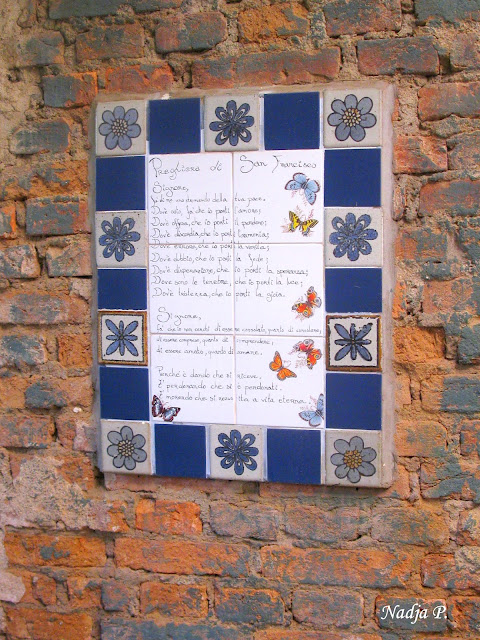 Preghiera di San Francesco
Signore,
della tua pace,
Dove odio, fa' che io porti l'amore;
Dove offesa, che io porti il perdono;
Dove discordia, che io porti l'armonia;
Dove errore, che io porti la verità;
Dove dubbio, che io porti la fede;
Dove disperazione, che io porti la speranza;
Dove sono le tenebre, che io porti la luce;
Dove tristezza, che io porti la gioia.
Signore,
fa' che io non cerchi di essere consolato, quanto di consolare;
di essere compreso, quanto di comprendere;
di essere amato, quanto di amare.
Perché è dando che si riceve,
È perdonando che si è perdonati.
È morendo che si resuscita a vita eterna.
Nadja P.